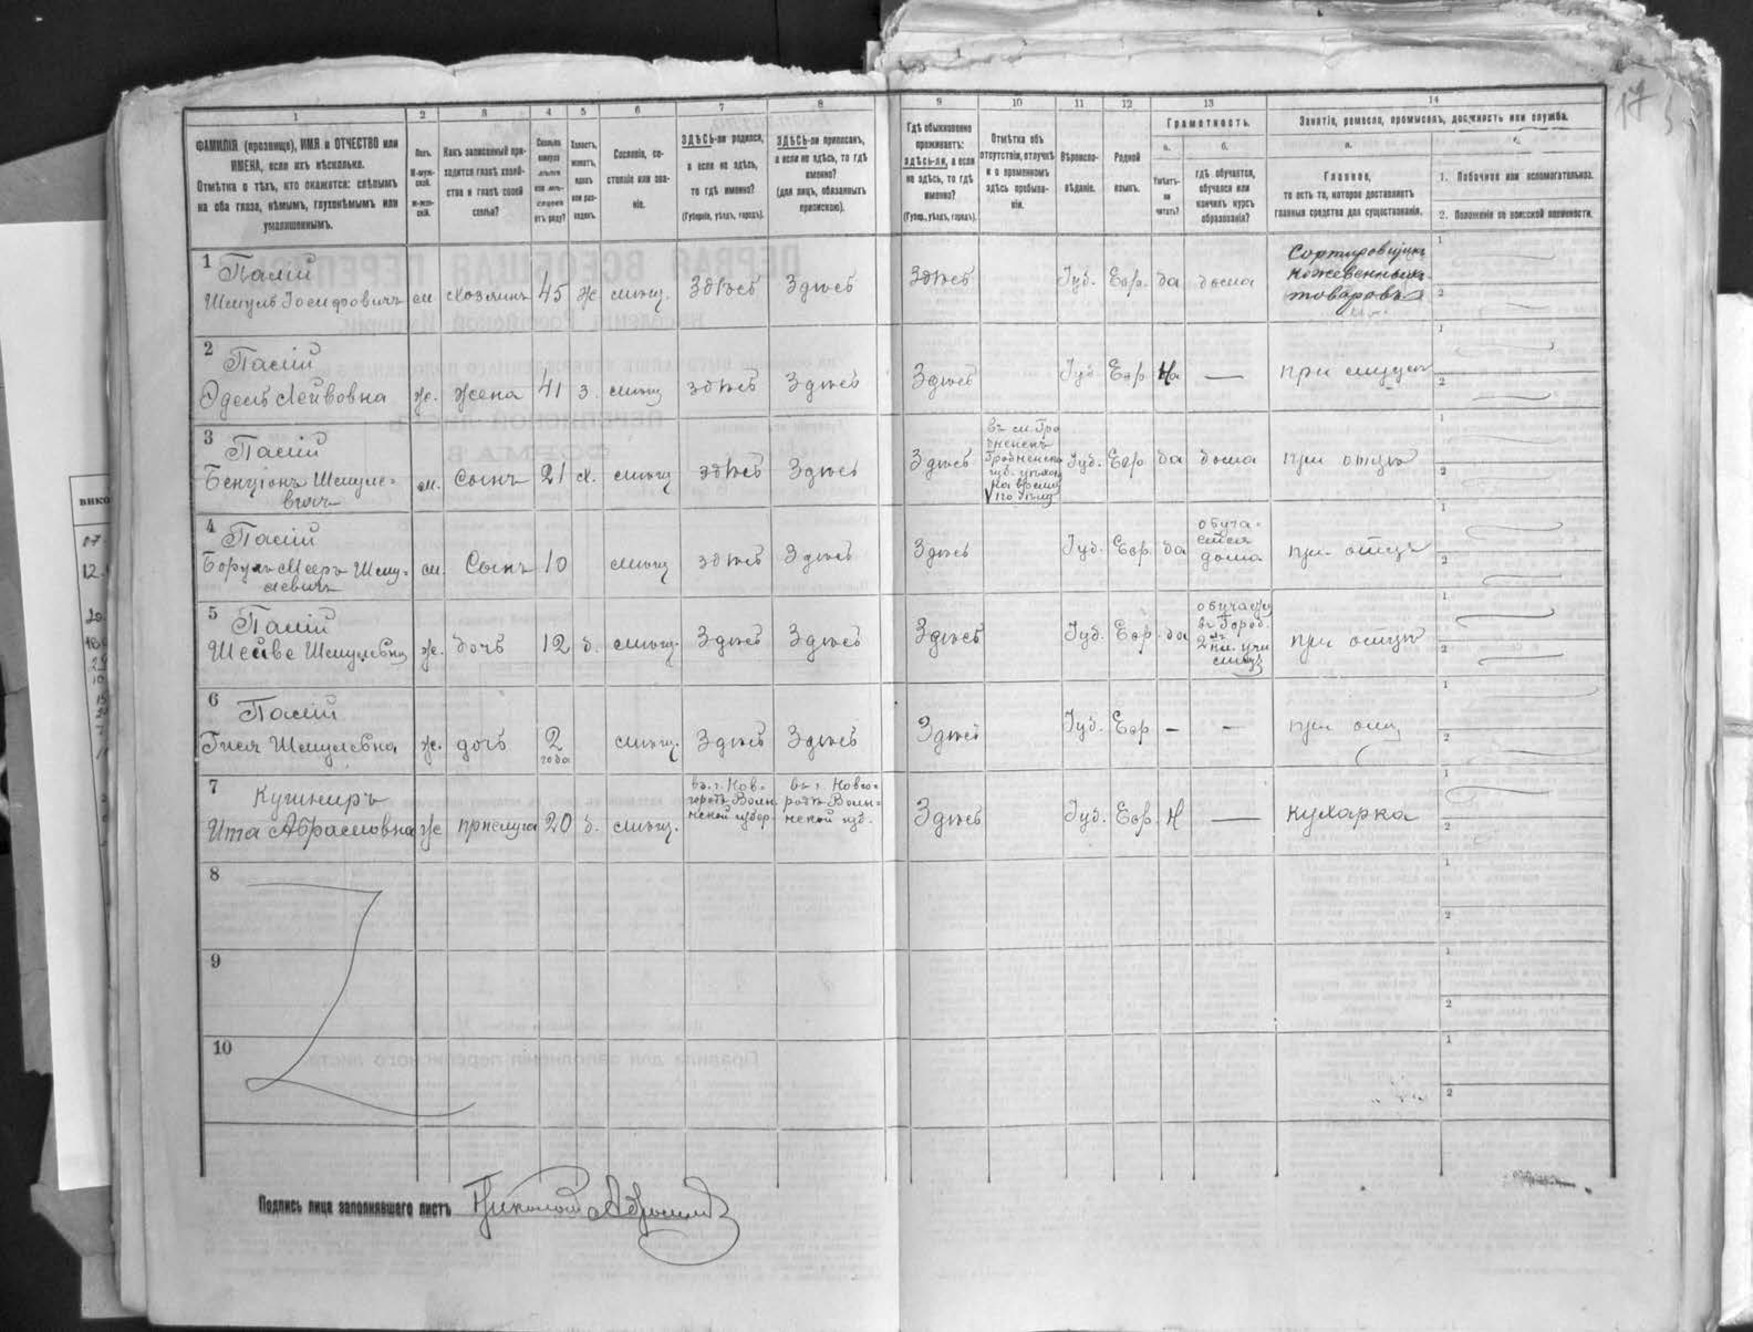 17
1 2 3 4 5 6 7 8 9 10 11 12 13 14
ФАМИЛІЯ (прозвище), ИМЯ и ОТЧЕСТВО или ИМЕНА, если ихъ нѣсколько.
Отмѣтка о тѣхъ, кто окажется: слѣпымъ на оба глаза, нѣмымъ, глухонѣмымъ или умалишеннымъ.
Полъ.
Какъ записанный приходится главѣ хозяйства и главѣ своей семьи?
Сословіе, состояніе или званіе.
ЗДѢСЬ-ли родился, а если не здѣсь, то гдѣ именно?
(Губернія, уѣздъ, городъ).
ЗДѢСЬ-ли приписанъ, а если не здѣсь, то гдѣ именно?
(для лицъ, обязанныхъ припискою).
Гдѣ обыкновенно проживаетъ: здѣсь-ли, а если не здѣсь, то гдѣ именно?
(Губер., уѣздъ, городъ).
Отмѣтка объ отсутствіи, отлучкѣ и о временномъ здѣсь пребываніи.
Вѣроисповѣданіе.
Родной языкъ.
Грамотность.
а.
Умѣетъ-ли читать?
б.
гдѣ обучается, обучался или кончилъ курсъ образованія?
Занятіе, ремесло, промыселъ, должность или служба.
Главное,
то есть то, которое доставляетъ главныя средства для существованія.
1. Побочное или вспомогательное.
2. Положеніе по воинской повинности.
1 Палій
Шмуль Іосифовичъ м хозяинъ 45 ж мѣщ. Здѣсь Здѣсь Здѣсь Іуд. Евр. да дома Сортировщикъ
кожевенныхъ
товаровъ
2 Палій
Эдель Лейбовна ж. жена 41 з. мѣщ здѣсь Здѣсь Здѣсь Іуд Евр — при мужѣ
3 Палій
Бенціонъ Шмуле-
вичъ м. сынъ 21 х. мѣщ здѣсь Здѣсь Здѣсь Іуд. Евр да дома при отцѣ
4 Палій
Шму-
левичъ м. Сынъ 10 мѣщ здѣсь Здѣсь Здѣсь Іуд. Евр. да обуча-
ется
дома при отцѣ
5 Палій
Шейве Шмулевна ж. дочь 12 д. мѣщ. Здѣсь Здѣсь Здѣсь Іуд. Евр. да въ Город.
2 кл. учи при отцѣ
6 Палій
Шмулевна ж. дочь 2
года мѣщ. Здѣсь Здѣсь Здѣсь Іуд. Евр — — при отц
7 Кушниръ
Ита Абрамовна ж прислуга 20 д. мѣщ. въ г. Нов-
городъ Волын
ской губер въ г. Новго-
родъ Волын-
ской губ. Здѣсь Іуд. Евр. Н — кухарка
8
9
10
Подпись лица заполнявшаго листъ